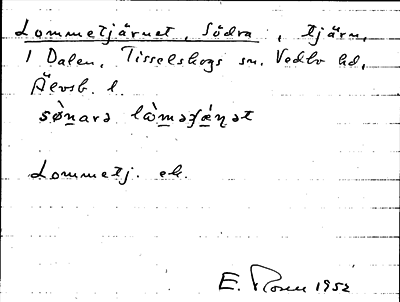 Lommetjärnet, Södra, tjärn,
i Dalen, Tisselskogs sn. Vedbo hd,
Älvsb. l.
sø̀narə lòməʃǽṇət
Lommetj. ek.
E. Rosen 1952